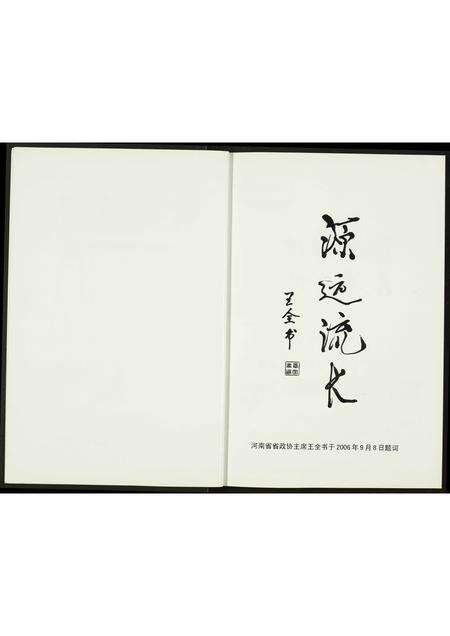 源远流长
王全书
河南省省政协主席王全书于2006年9月8日题词